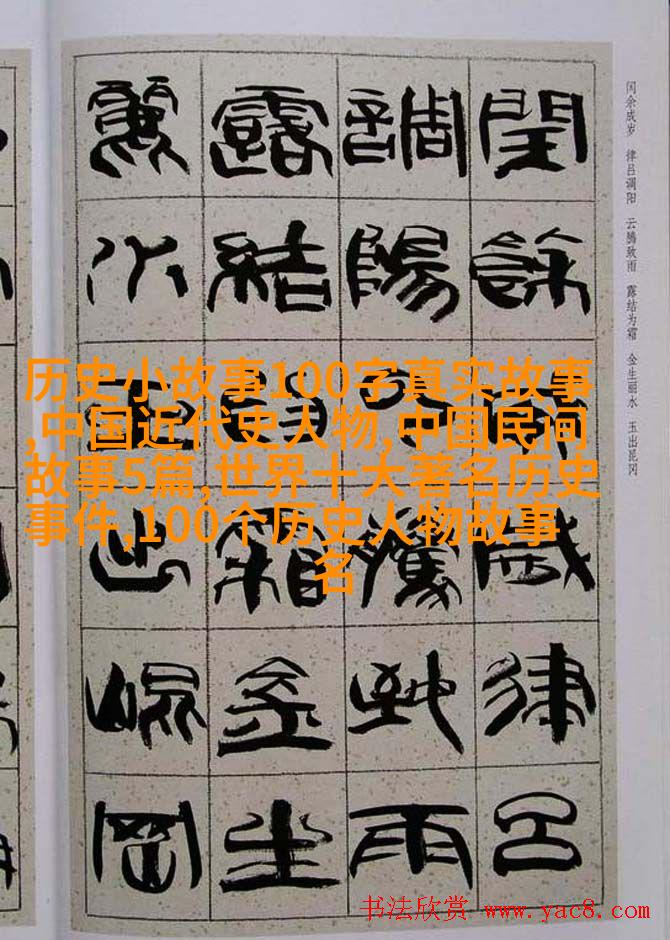 閏餘成歲律呂
調陽雲騰致雨
露結為霜金生
麗水玉出崐岡
闰余成岁 律吕调阳 云腾致雨 露结为霜 金生丽水 玉出昆冈
历史小故事100字真实故事
,中国近代史人物,中国民间
故事5篇,世界十大著名历史
事件,100个历史人物故事
名
书法欣赏 www.yac8.com